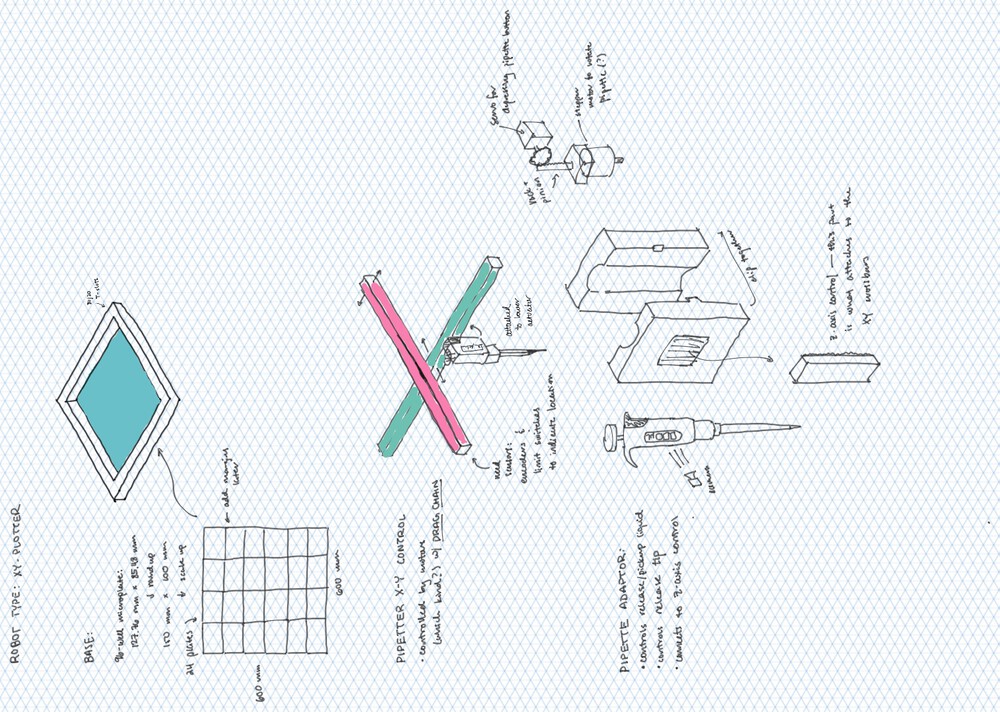 ROBOT TYPE: XY-PLOTTER
BASE:
96-well microplate:
127.76 mm × 85.48 mm
↓ round up
150 mm × 100 mm
↓ scale up
24 plates
T-slots
← add margins
later
600 mm
600 mm
PIPETTER X-Y CONTROL
• controlled by motors
(which kind?) w/ DRAG CHAIN
need
sensors:
encoders &
limit switches
to indicate location
attached
to lower
actuator
servo for
depressing pipette button
rack +
pinion
stepper
motor to rotate
pipette (?)
PIPETTE ADAPTOR:
• controls release/pickup liquid
• controls release tip
• connects to z-axis control
camera
clip together
z-axis control — this part
is what attaches to the
XY crossbars